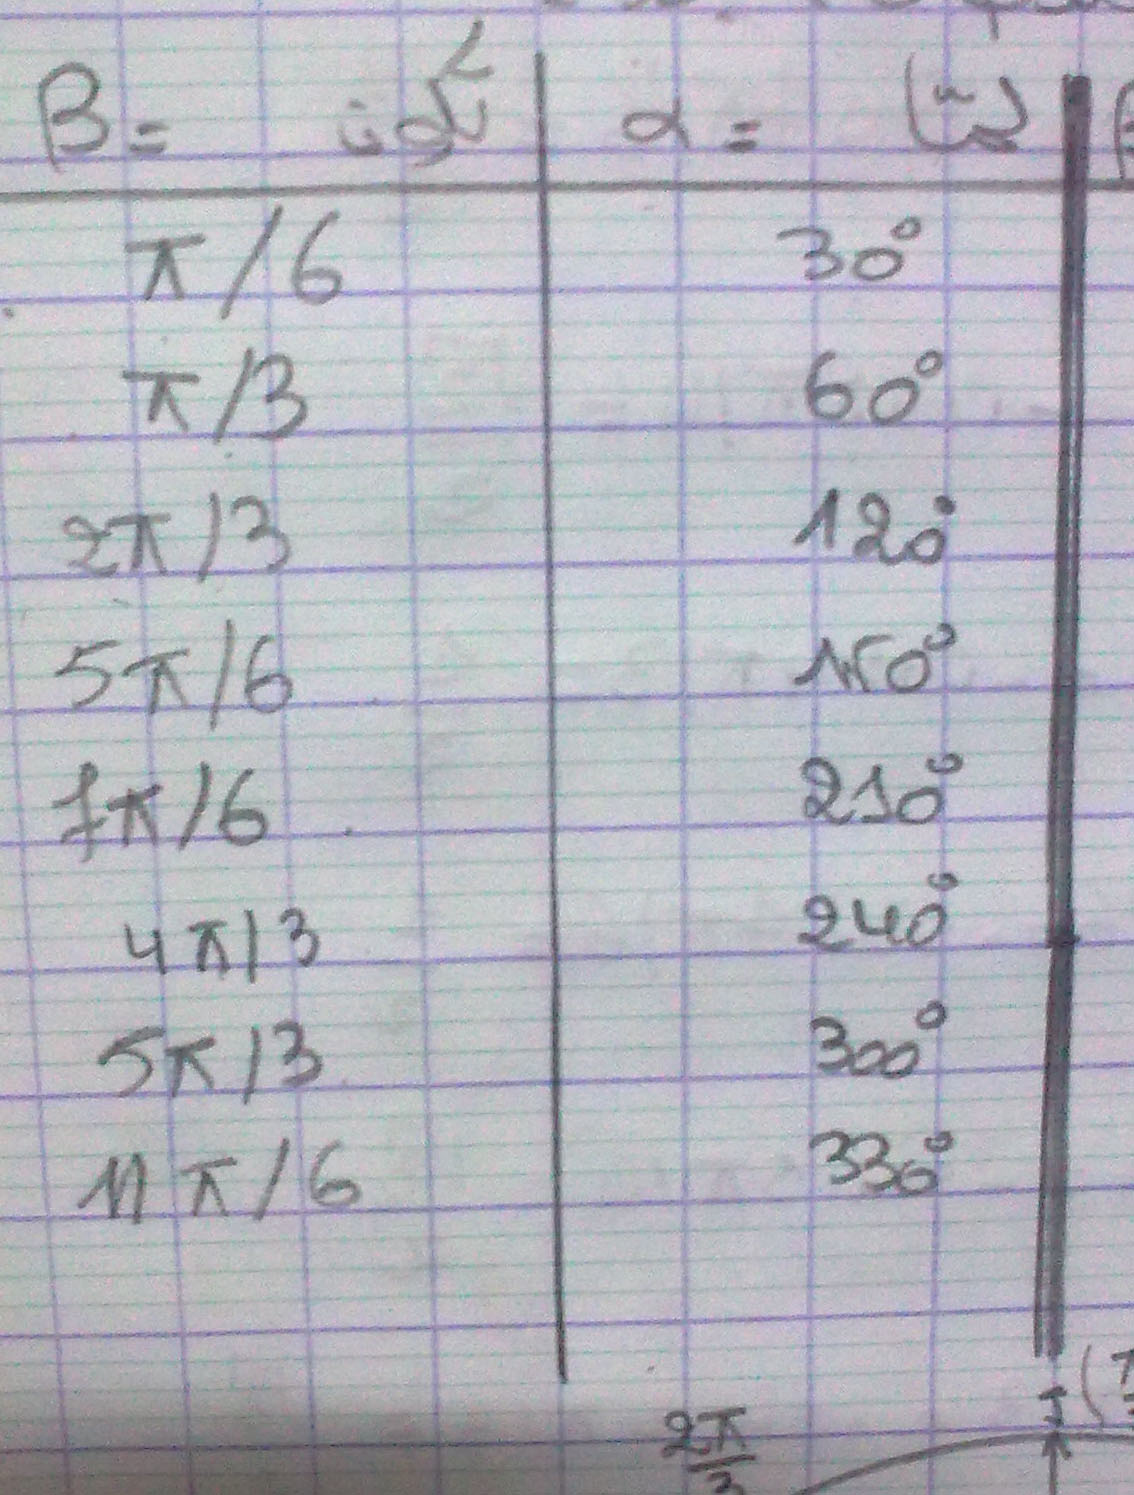 β = راديان α = درجة
π/6 30°
π/3 60°
2π/3 120°
5π/6 150°
7π/6 210°
4π/3 240°
5π/3 300°
11π/6 330°
2π/3 J